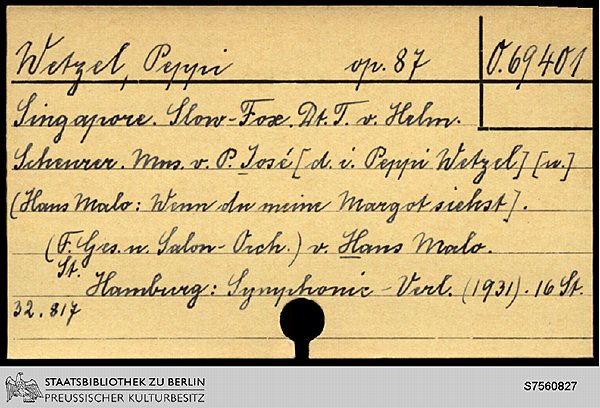 Wetzel, Peppi op. 87 O. 69401
Singapore. Slow-Fox. Dt. T. v. Helm.
Scheurer. Mus. v. P. José [d. i. Peppi Wetzel] [u.]
(Hans Malo: Wenn du meine Margot siehst].
(F. Ges. u. Salon-Orch.) v. Hans Malo.
St.
Hamburg: Symphonie-Verl. (1931). 16 St.
32. 817
STAATSBIBLIOTHEK ZU BERLIN
PREUSSISCHER KULTURBESITZ
S7560827